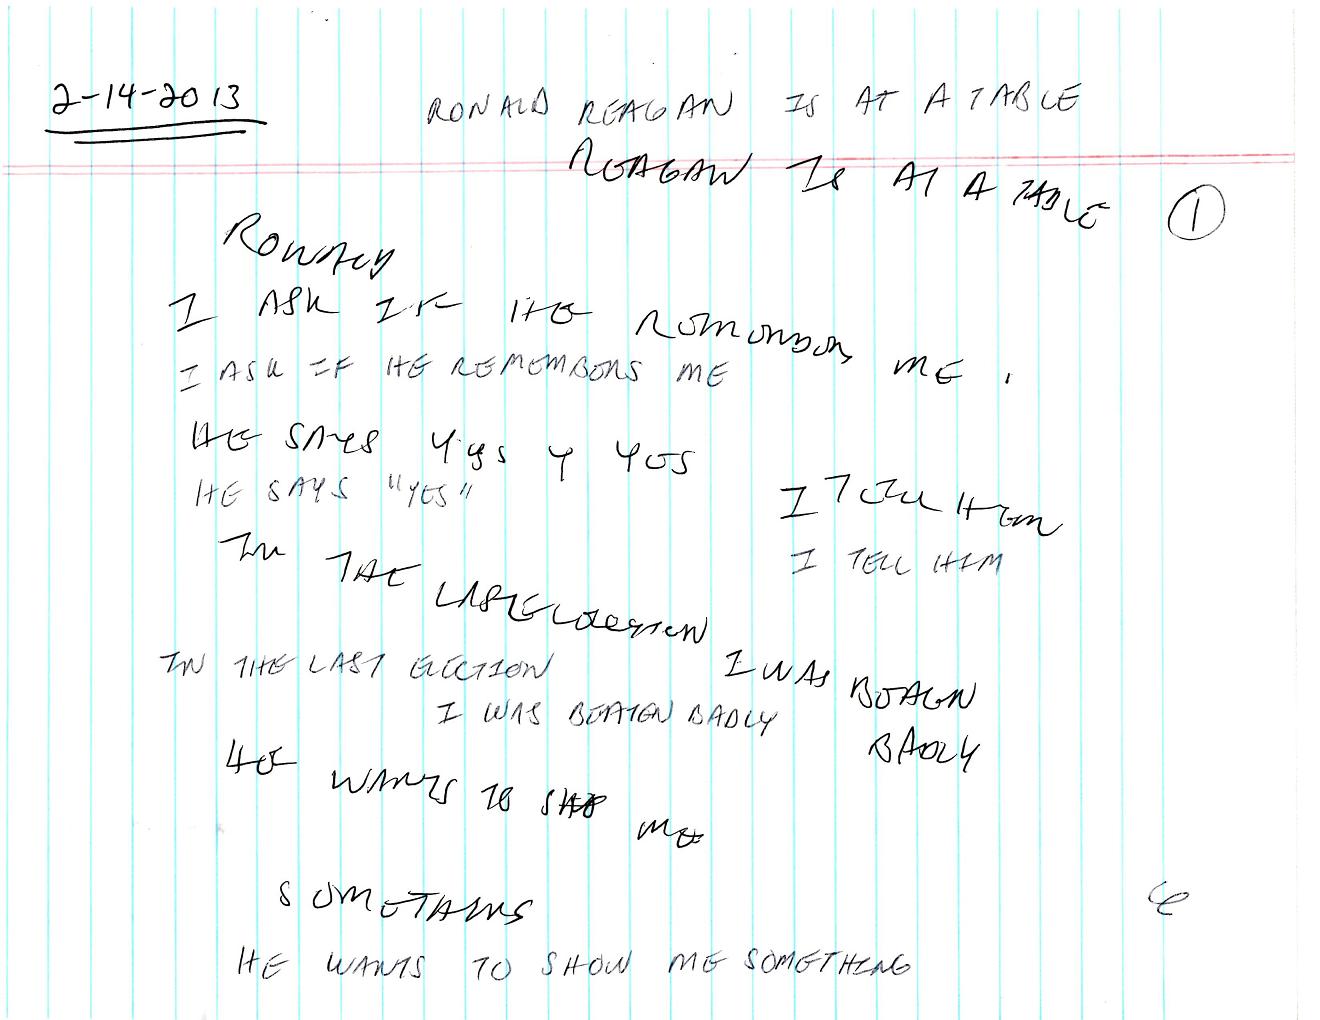 2-14-2013
RONALD REAGAN IS AT A TABLE
REAGAN IS AT A TABLE
1
RONALD
I ASK IF HE REMEMBERS ME.
I ASK IF HE REMEMBERS ME
HE SAYS YES Y YES
HE SAYS "YES"
I TELL HIM
I TELL HIM
IN THE LAST ELECTION
IN THE LAST ELECTION
I WAS BEATEN
BADLY
I WAS BEATEN BADLY
HE WANTS TO ME
SOMETHING
HE WANTS TO SHOW ME SOMETHING